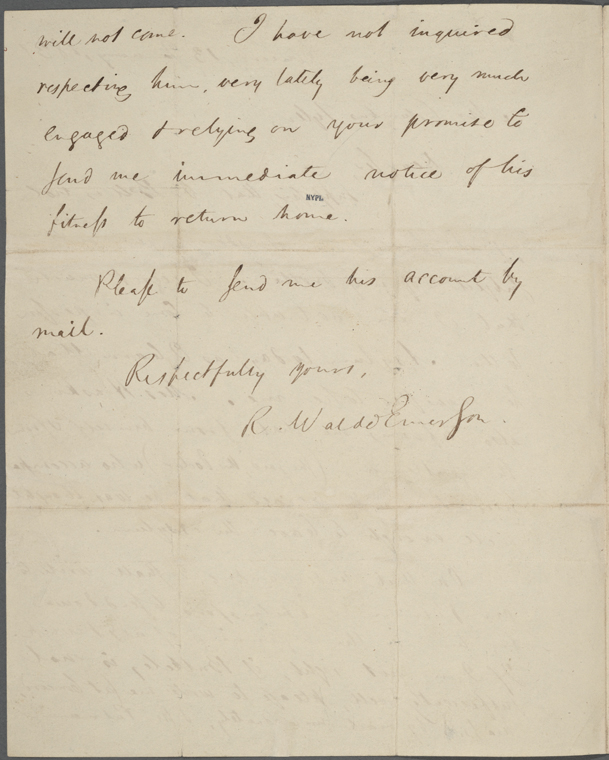 will not come. I have not inquired
respecting him, very lately being very much
engaged & relying on your promise to
send me immediate notice of his
NYPL
fitness to return home.
Please to send me his account by
mail.
Respectfully yours,
R. Waldo Emerson.